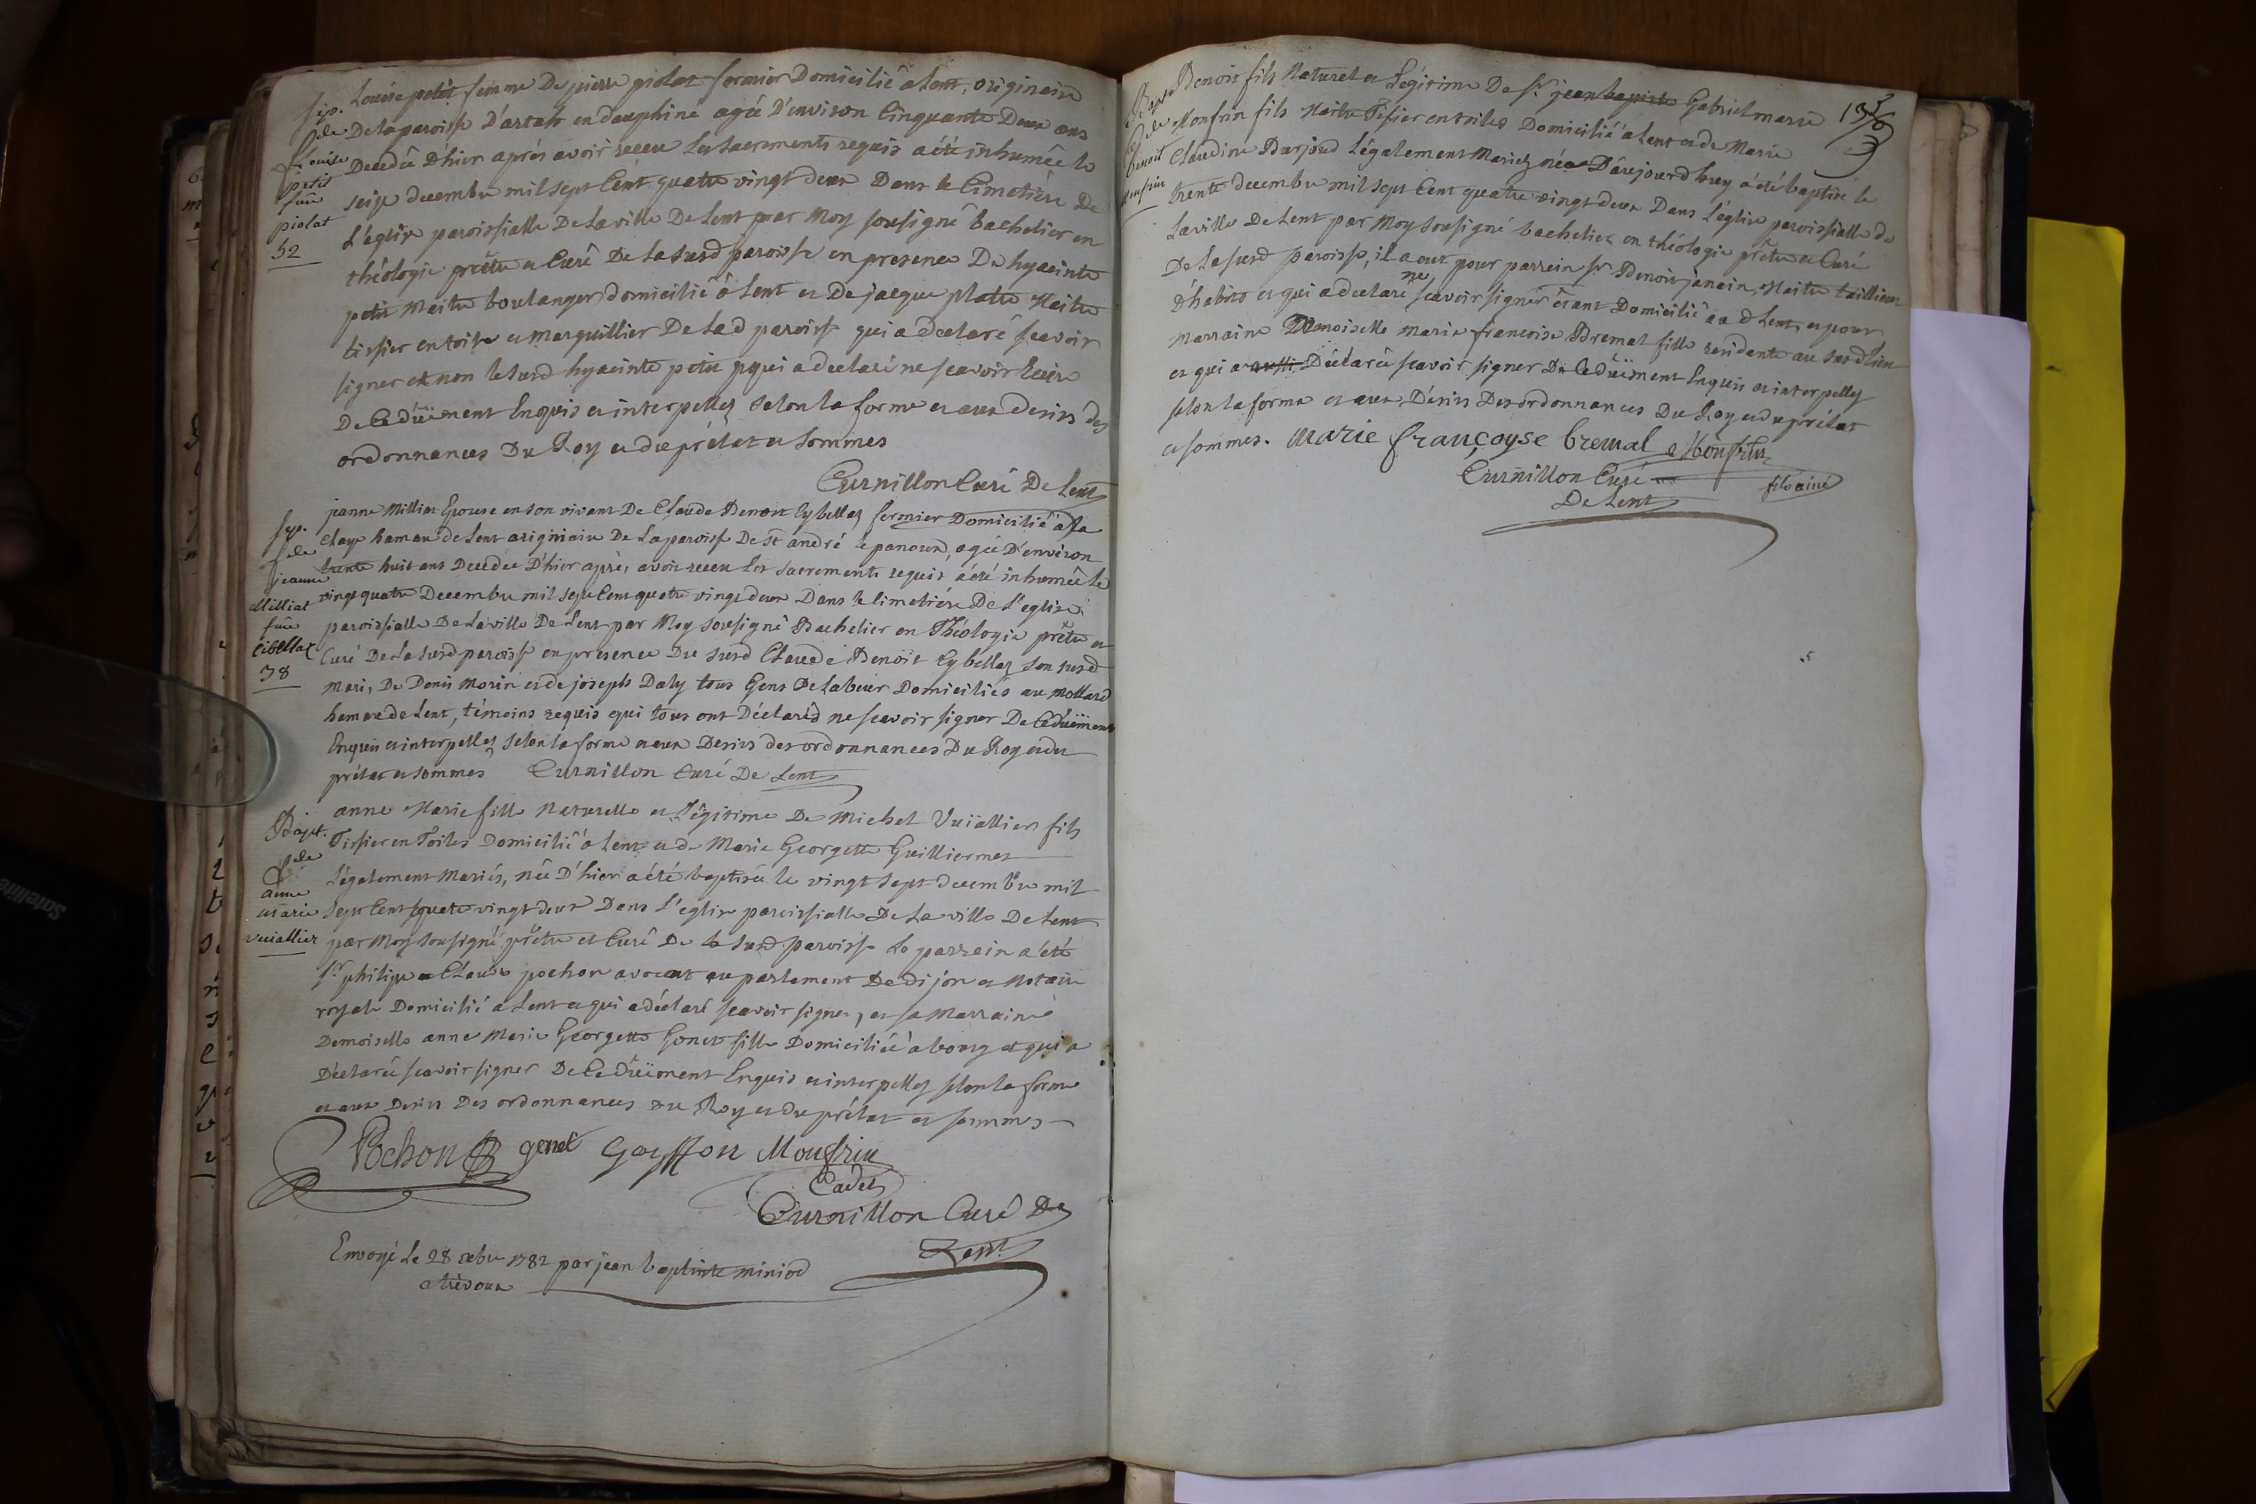 sep.
de
Louise
petit
fẽe
piolat
52
Louise petit femme De pierre piolat fermier Domicilié a Lent, originaire
De la paroisse D'artas en dauphiné agée D'environ Cinquante Deux ans
Decedée D'hier aprés avoir receu Les sacrements requis a été inhumée le
seize decembre mil sept Cent quatre vingt deux Dans le Cimetiére De
L'eglise paroissialle De La ville De Lent par Moy sousigné bachelier en
théologie prêtre et Curé De La susd paroisse en presence De hyacinte
petit Maitre boulanger domicilié a Lent et De jacque platre Maitre
tissier en toile et marguillier De Lad paroisse qui a declaré scavoir
signer et non le susd hyacinte petit qui a declaré ne scavoir Ecrire
De Ce düement Enquis et interpellez selon la forme et aux desirs des
ordonnances Du Roy et du prélat et sommes
Curnillon Curé De Lent
sep.
de
jeanne
Milliat
fẽe
Cibellaz
38
janne Milliat Epouse en son vivant De Claude Benoit Cybellaz fermier Domicilié a la
Claye hameau de Lent originaire De La paroisse De st andré le panoux, agée D'environ
trente huit ans Decedée D'hier aprés avoir receu Les sacrements requis a été inhumée le
vingt quatre Decembre mil sept Cent quatre vingt deux Dans le Cimetiére De L'eglise
paroissialle De La ville De Lent par Moy sousigné Bachelier en Théologie prêtre et
Curé De La susd paroisse en presence Du susd Claude Benoit Cybellaz son susd
Mari, De Denis Morin et de joseph Daly tous Gens De Labeur Domiciliés au Mollard
hameau de Lent, témoins requis qui tous ont Déclaréd ne scavoir signer De Ce düement
Enquis et interpellez selon la forme et aux Desirs des ordonnances Du Roy et du
prélat et sommes Curnillon Curé De Lent
Bapt.
de
anne
marie
vuiallier
anne Marie fille Naturelle et Légitime De Michel Vuiallier fils
Tissier en Toiles Domicilié a Lent et de Marie Georgette Guilliermet
Légalement Mariés, née D'hier a été baptisée le vingt sept decembre mil
sept Cent quatre vingt deux Dans L'eglise paroissialle De La ville De Lent
par Moy sousigné prêtre et Curé De La susd paroisse Le parrein a été
sr philipe Claude pochon avocat au parlement De dijon et Notaire
royale Domicilié a Lent et qui a déclaré scavoir signer, et sa Marraine
Demoiselle anne Marie Georgette Gonet fille Domiciliée a bourg et qui a
Déclarée scavoir signer De Ce düement Enquis et interpellez selon la forme
et aux Desirs Des ordonnances du Roy et du prélat et sommes
Pochon gonet Goyffon Monfrin
Cadet
Curnillon Curé De
Lent
Envoyé Le 28 xbre 1782 par jean baptiste miniod
a trévoux
Bapt
de
benoit
monfrin
Benoit fils Naturel et Légitime De sr jean baptiste Gabriel marie
Monfrin fils Maitre Tissier en toiles Domicilié a Lent et de Marie
Claudine Barjoud Légalement Mariez né D'aujourd'huy a été baptisé le
trente decembre mil sept Cent quatre vingt deux Dans L'église paroissialle de
La ville De Lent par Moy sousigné bachelier en théologie prêtre et Curé
De La susd paroisse, il a eut pour parrein sr Benoit janein, Maitre tailleur
D'habits et qui a declaré ne scavoir signer étant Domicilié aud Lent, et pour
marraine Demoiselle marie francoise Bremal fille residente au susd Lieu
et qui a aussi Déclarée scavoir signer De Ce düement Enquis et interpellez
selon la forme et aux Désirs Des ordonnances Du Roy et du prélat
et sommes. Marie françoyse bremal Monfrin
Curnillon Curé fils ainé
De Lent